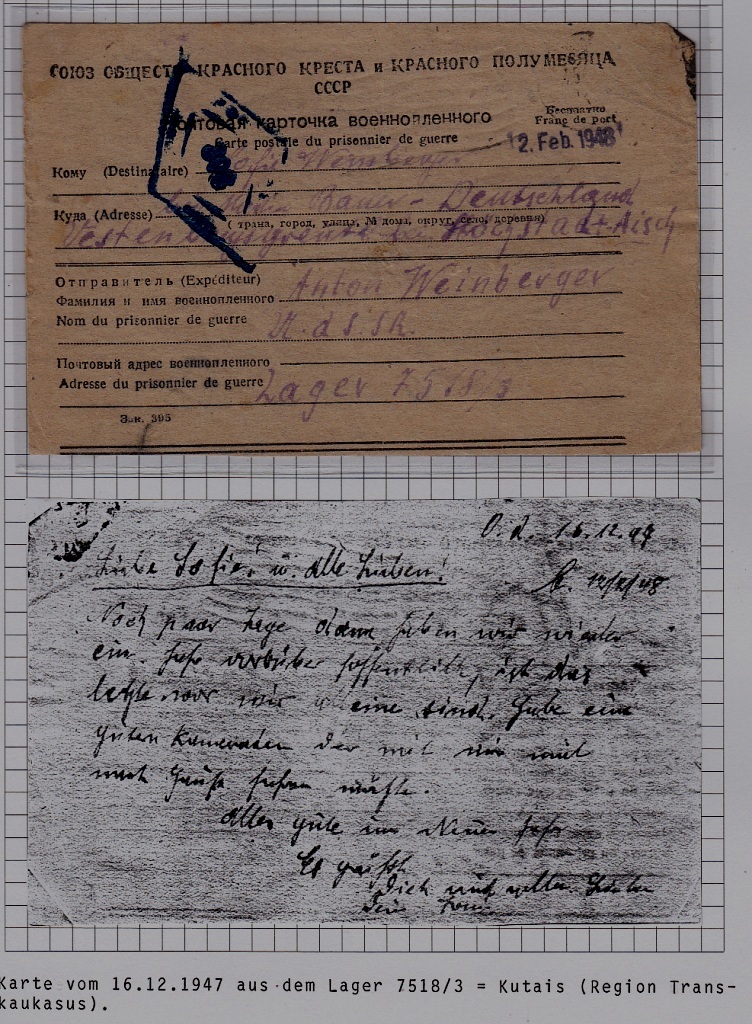 СОЮЗ ОБЩЕСТВ КРАСНОГО КРЕСТА и КРАСНОГО ПОЛУМЕСЯЦА
СССР
Почтовая карточка военнопленного
Бесплатно
Franc de port
Carte postale du prisonnier de guerre
12. Feb. 1948
Кому (Destinataire) Sofie Weinberger
Куда (Adresse) Deutschland
( трана, город, улица, № дома, округ, село, деревня)
Höchstadt Aisch
Отправитель (Expéditeur)
Фамилия и имя военнопленного Anton Weinberger
Nom du prisonnier de guerre U.d.S.S.R.
Почтовый адрес военнопленного
Adresse du prisonnier de guerre Lager 7518/3
Зак. 395
O. d. 16.12.47
Liebe Sofie! u. alle Lieben!
Noch paar Tage dann haben wir wieder
ein Jahr vorüber hoffentlich, ist das
letzte wo wir alleine sind. Habe ein
guten Kameraden der mit mir
nach Hause fahren möchte.
Alles gute im Neuen Jahr
Es grüßt
Dich und alle Lieben
Dein Toni
Karte vom 16.12.1947 aus dem Lager 7518/3 = Kutais (Region Trans-
kaukasus).